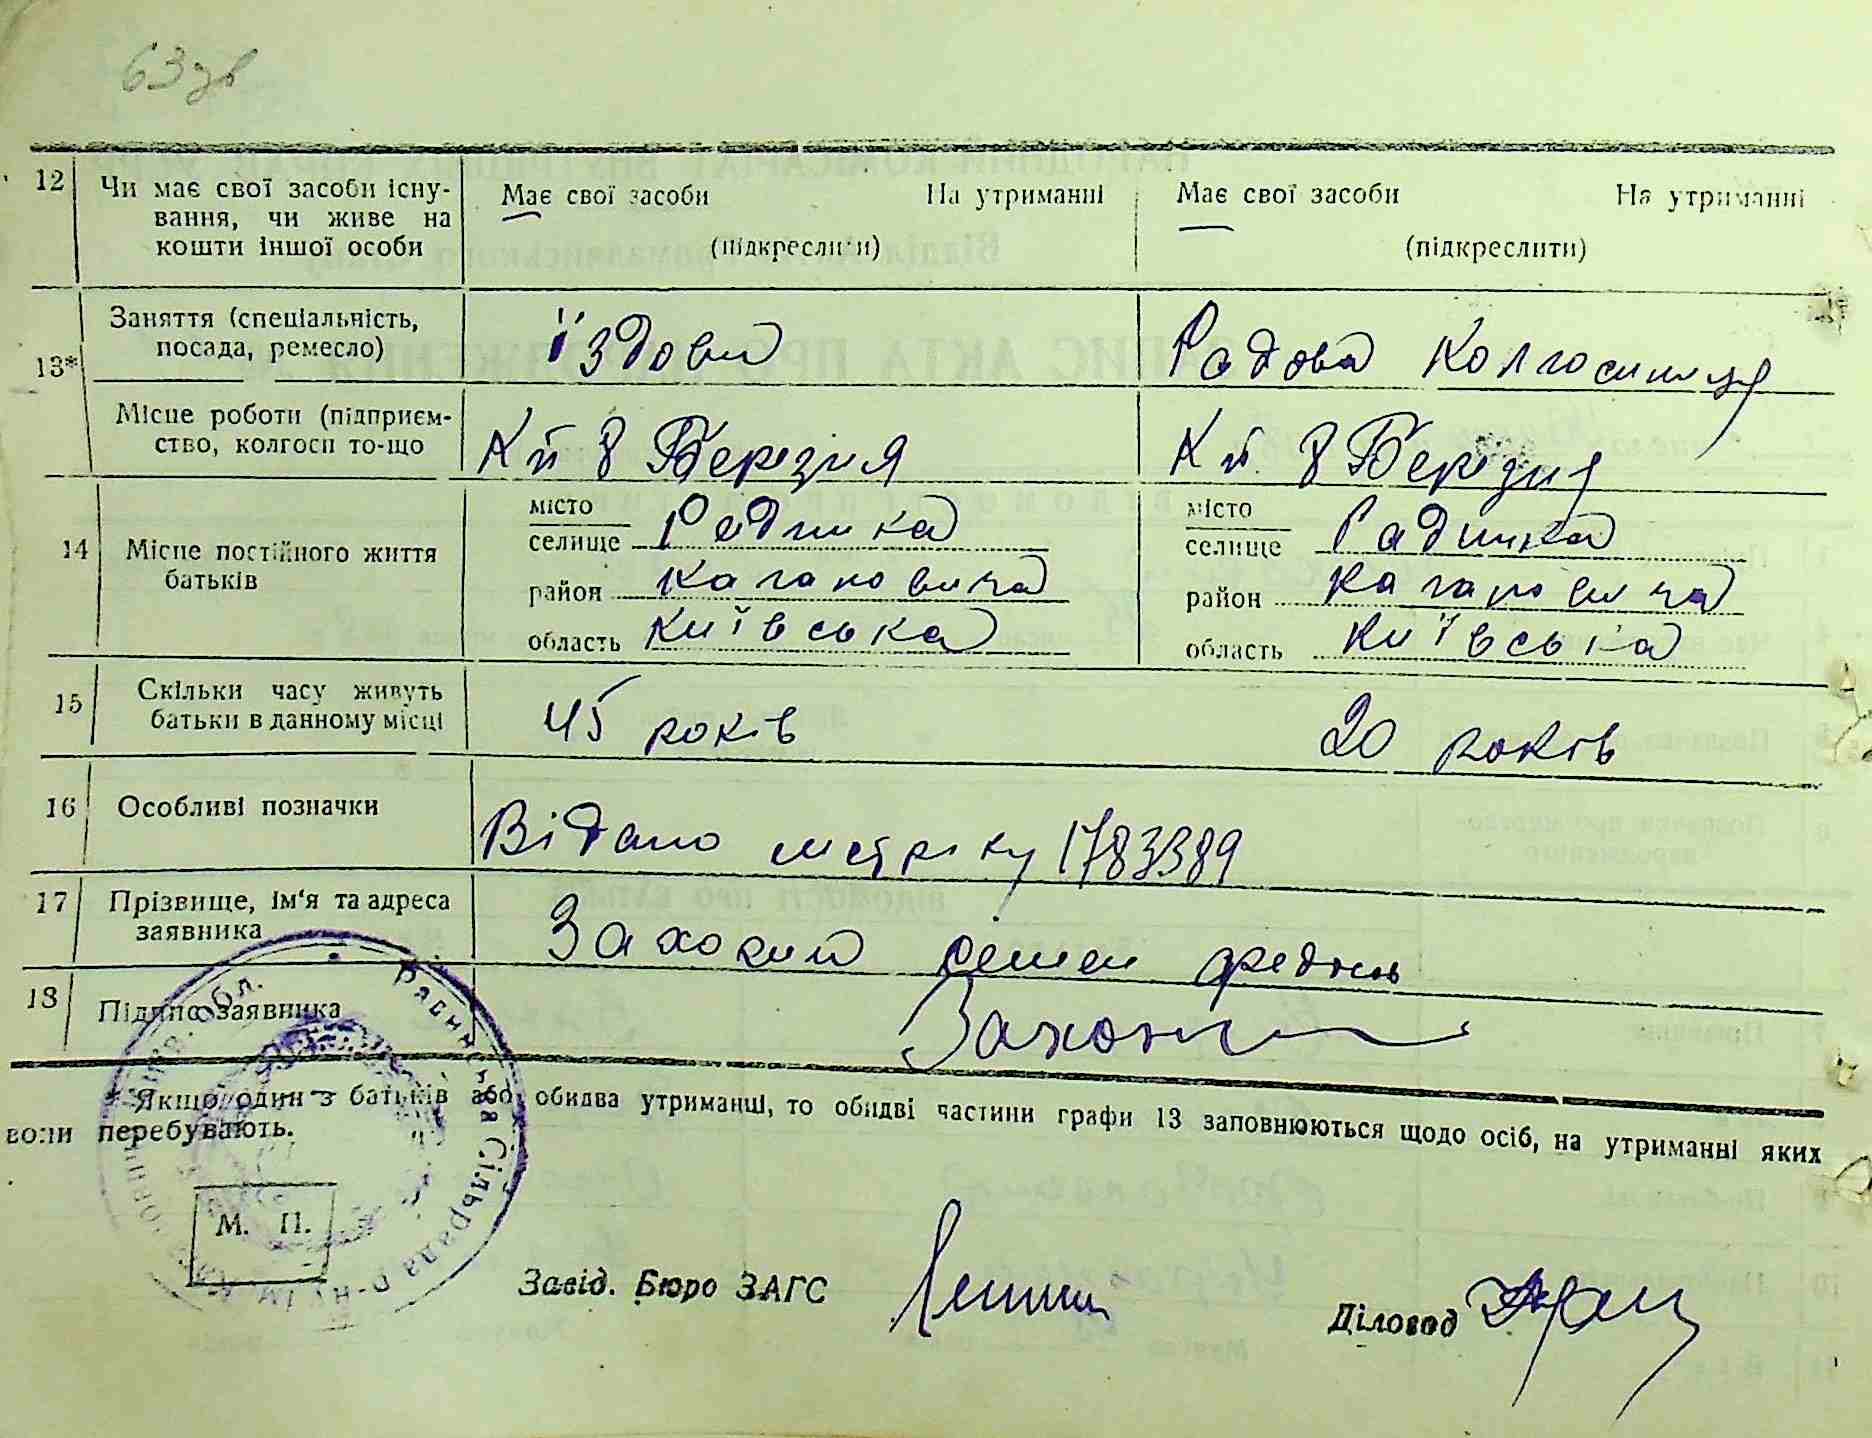 63 зв
12 Чи має свої засоби існу-
вання, чи живе на
кошти іншої особи
Має свої засоби На утриманні
(підкреслити)
Має свої засоби На утриманні
(підкреслити)
13* Заняття (спеціальність,
посада, ремесло)
їздовий
Радова Колгосниця
Місце роботи (підприєм-
ство, колгосп то-що
Кп 8 Березня
Кп 8 Березня
14 Місце постійного життя
батьків
місто
селище Радинка
район Кагановича
область Київська
місто
селище Радинка
район Кагановича
область Київська
15 Скільки часу живуть
батьки в данному місці
45 років
20 років
16 Особливі позначки
Відано метріку 1783389
17 Прізвище, ім'я та адреса
заявника
Заходий семен
18 Підпис заявника
* Якщо один з батьків або обидва утриманці, то обидві частини графи 13 заповнюються щодо осіб, на утриманні яких
вони перебувають.
М. П.
Сільрада Р-ну ім.
Завід. Бюро ЗАГС
Діловод